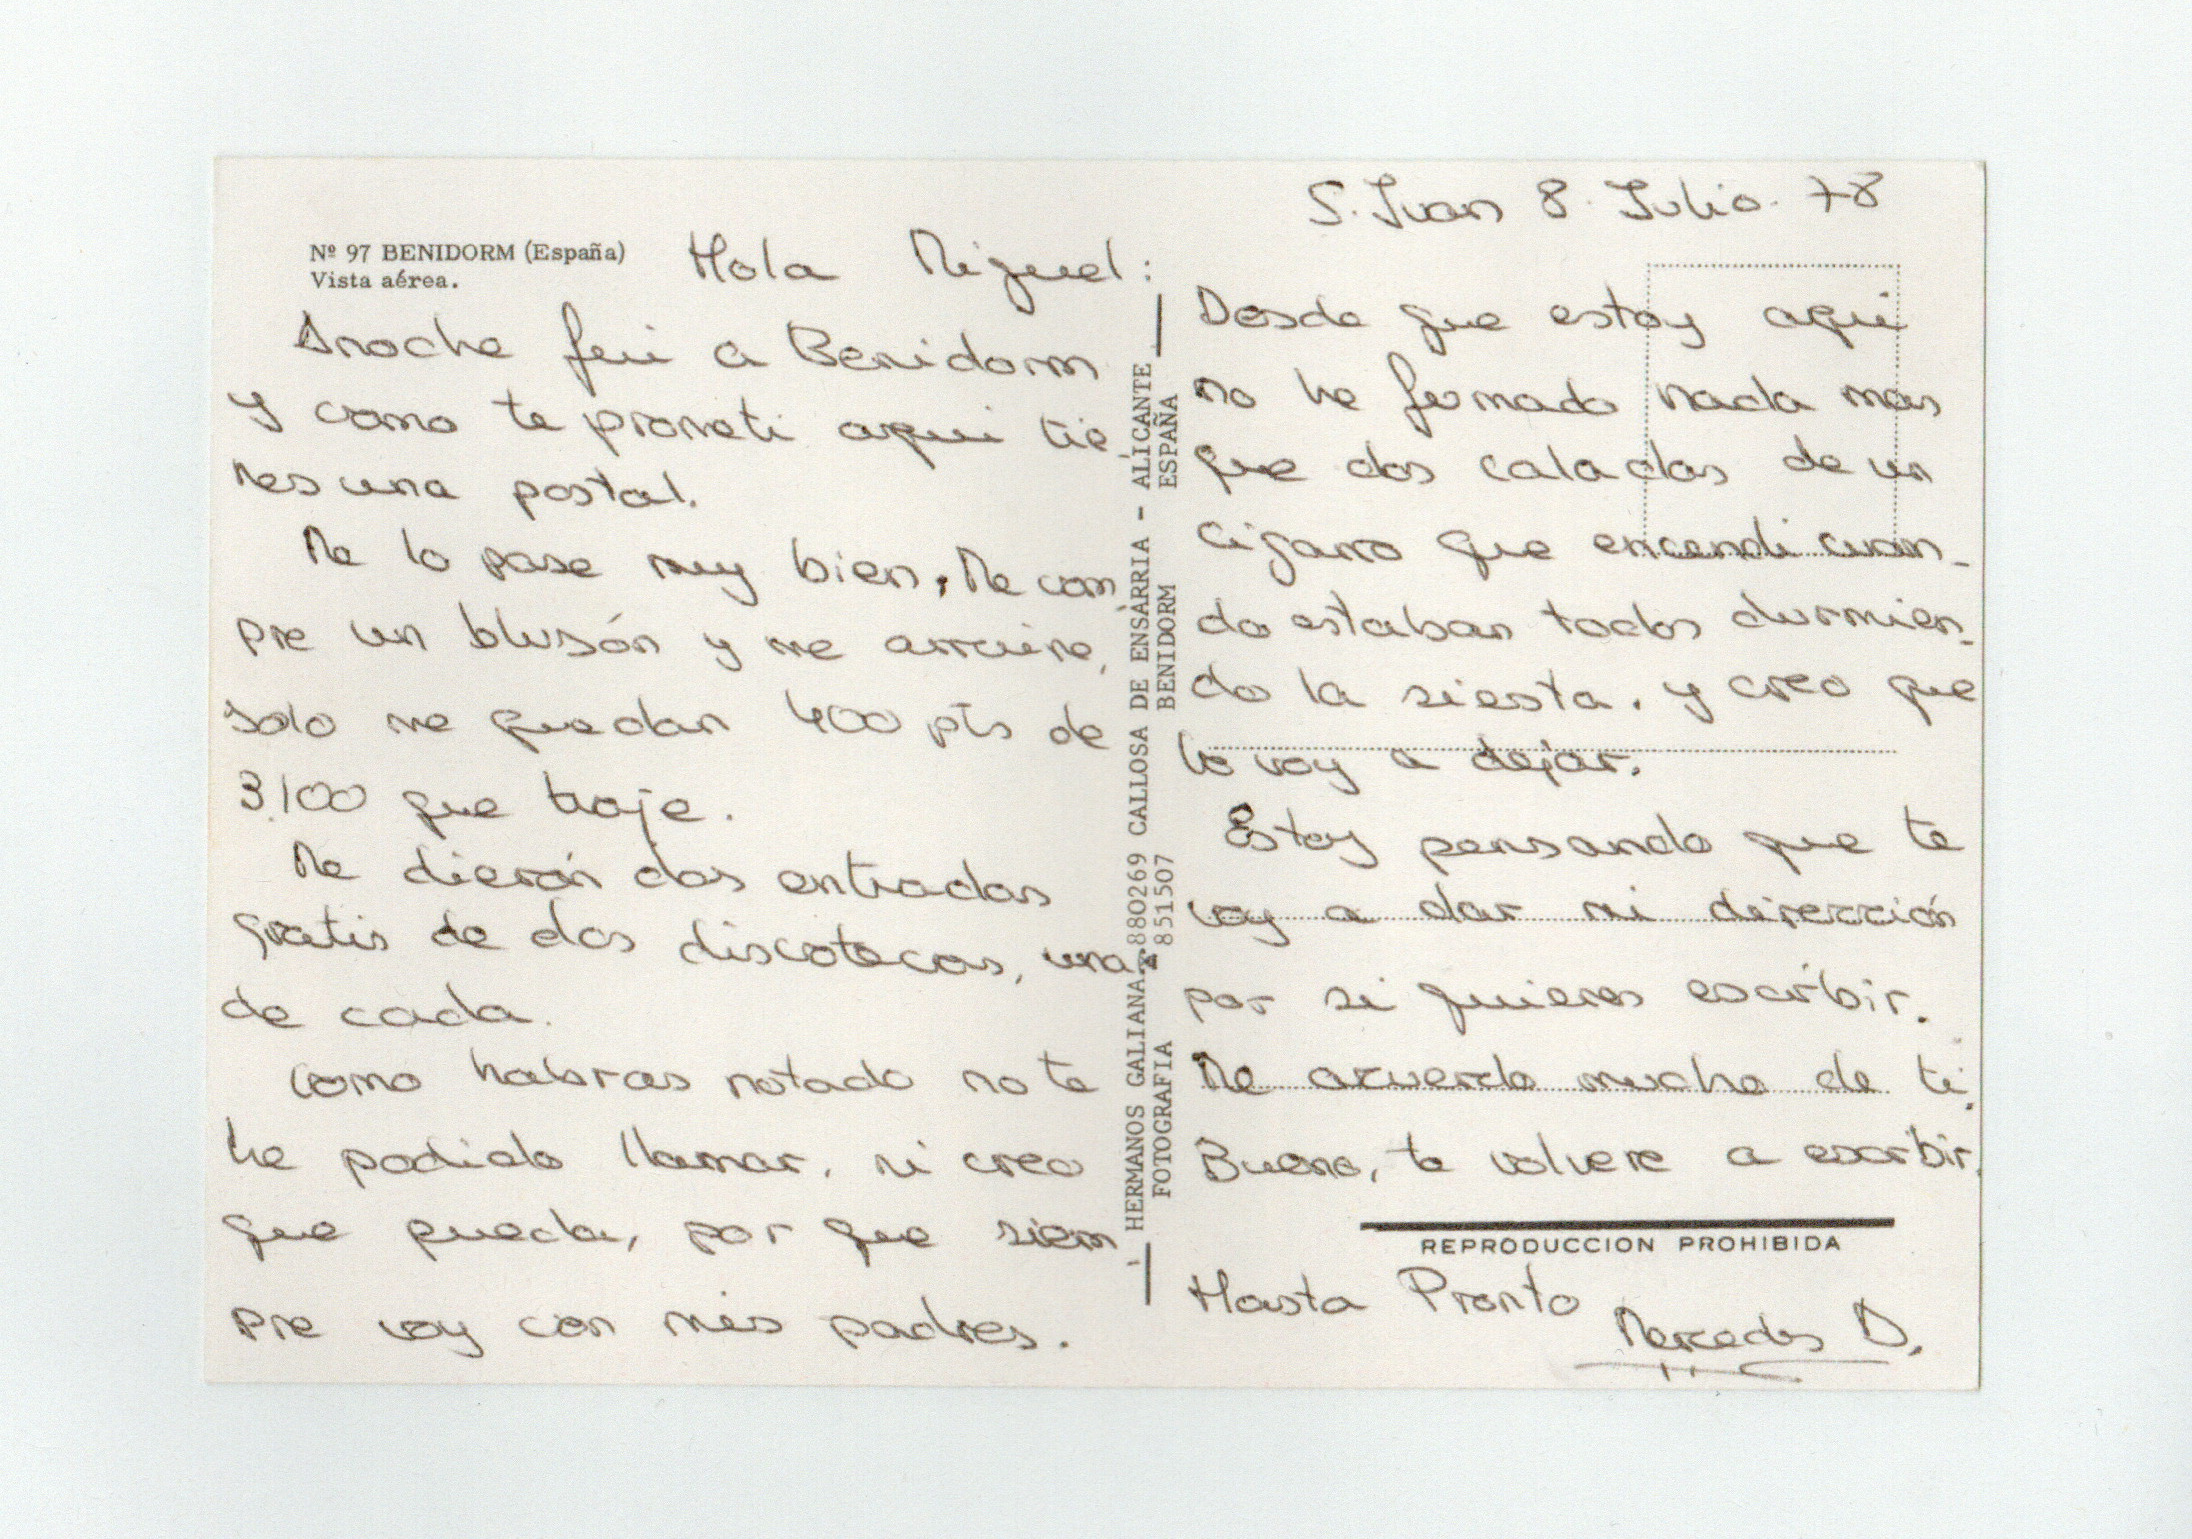 S. Juan 8. Julio. 78
Nº 97 BENIDORM (España)
Vista aérea.
Hola Miguel:
Anoche fui a Benidorm
Y como te prometi aqui tie-
nes una postal.
Me lo pase muy bien, Me com-
pre un blusón y me arruine,
solo me quedan 400 pts de
3.100 que traje.
Me dierón dos entradas
gratis de dos discotecas, una
de cada.
Como habras notado no te
he podido llamar, ni creo
que pueda, por que siem-
pre voy con mis padres.
HERMANOS GALIANA T. 880269 CALLOSA DE ENSARRIA - ALICANTE
FOTOGRAFIA 851507 BENIDORM ESPAÑA
Desde que estoy aqui
no he fumado nada mas
que dos caladas de un
cigarro que encendi cuan-
do estaban todos durmien-
do la siesta. y creo que
lo voy a dejar.
Estoy pensando que te
voy a dar mi dirección
por si quieres escribir.
Me acuerdo mucho de ti.
Bueno, te volvere a escribir.
REPRODUCCION PROHIBIDA
Hasta Pronto
Mercedes D.